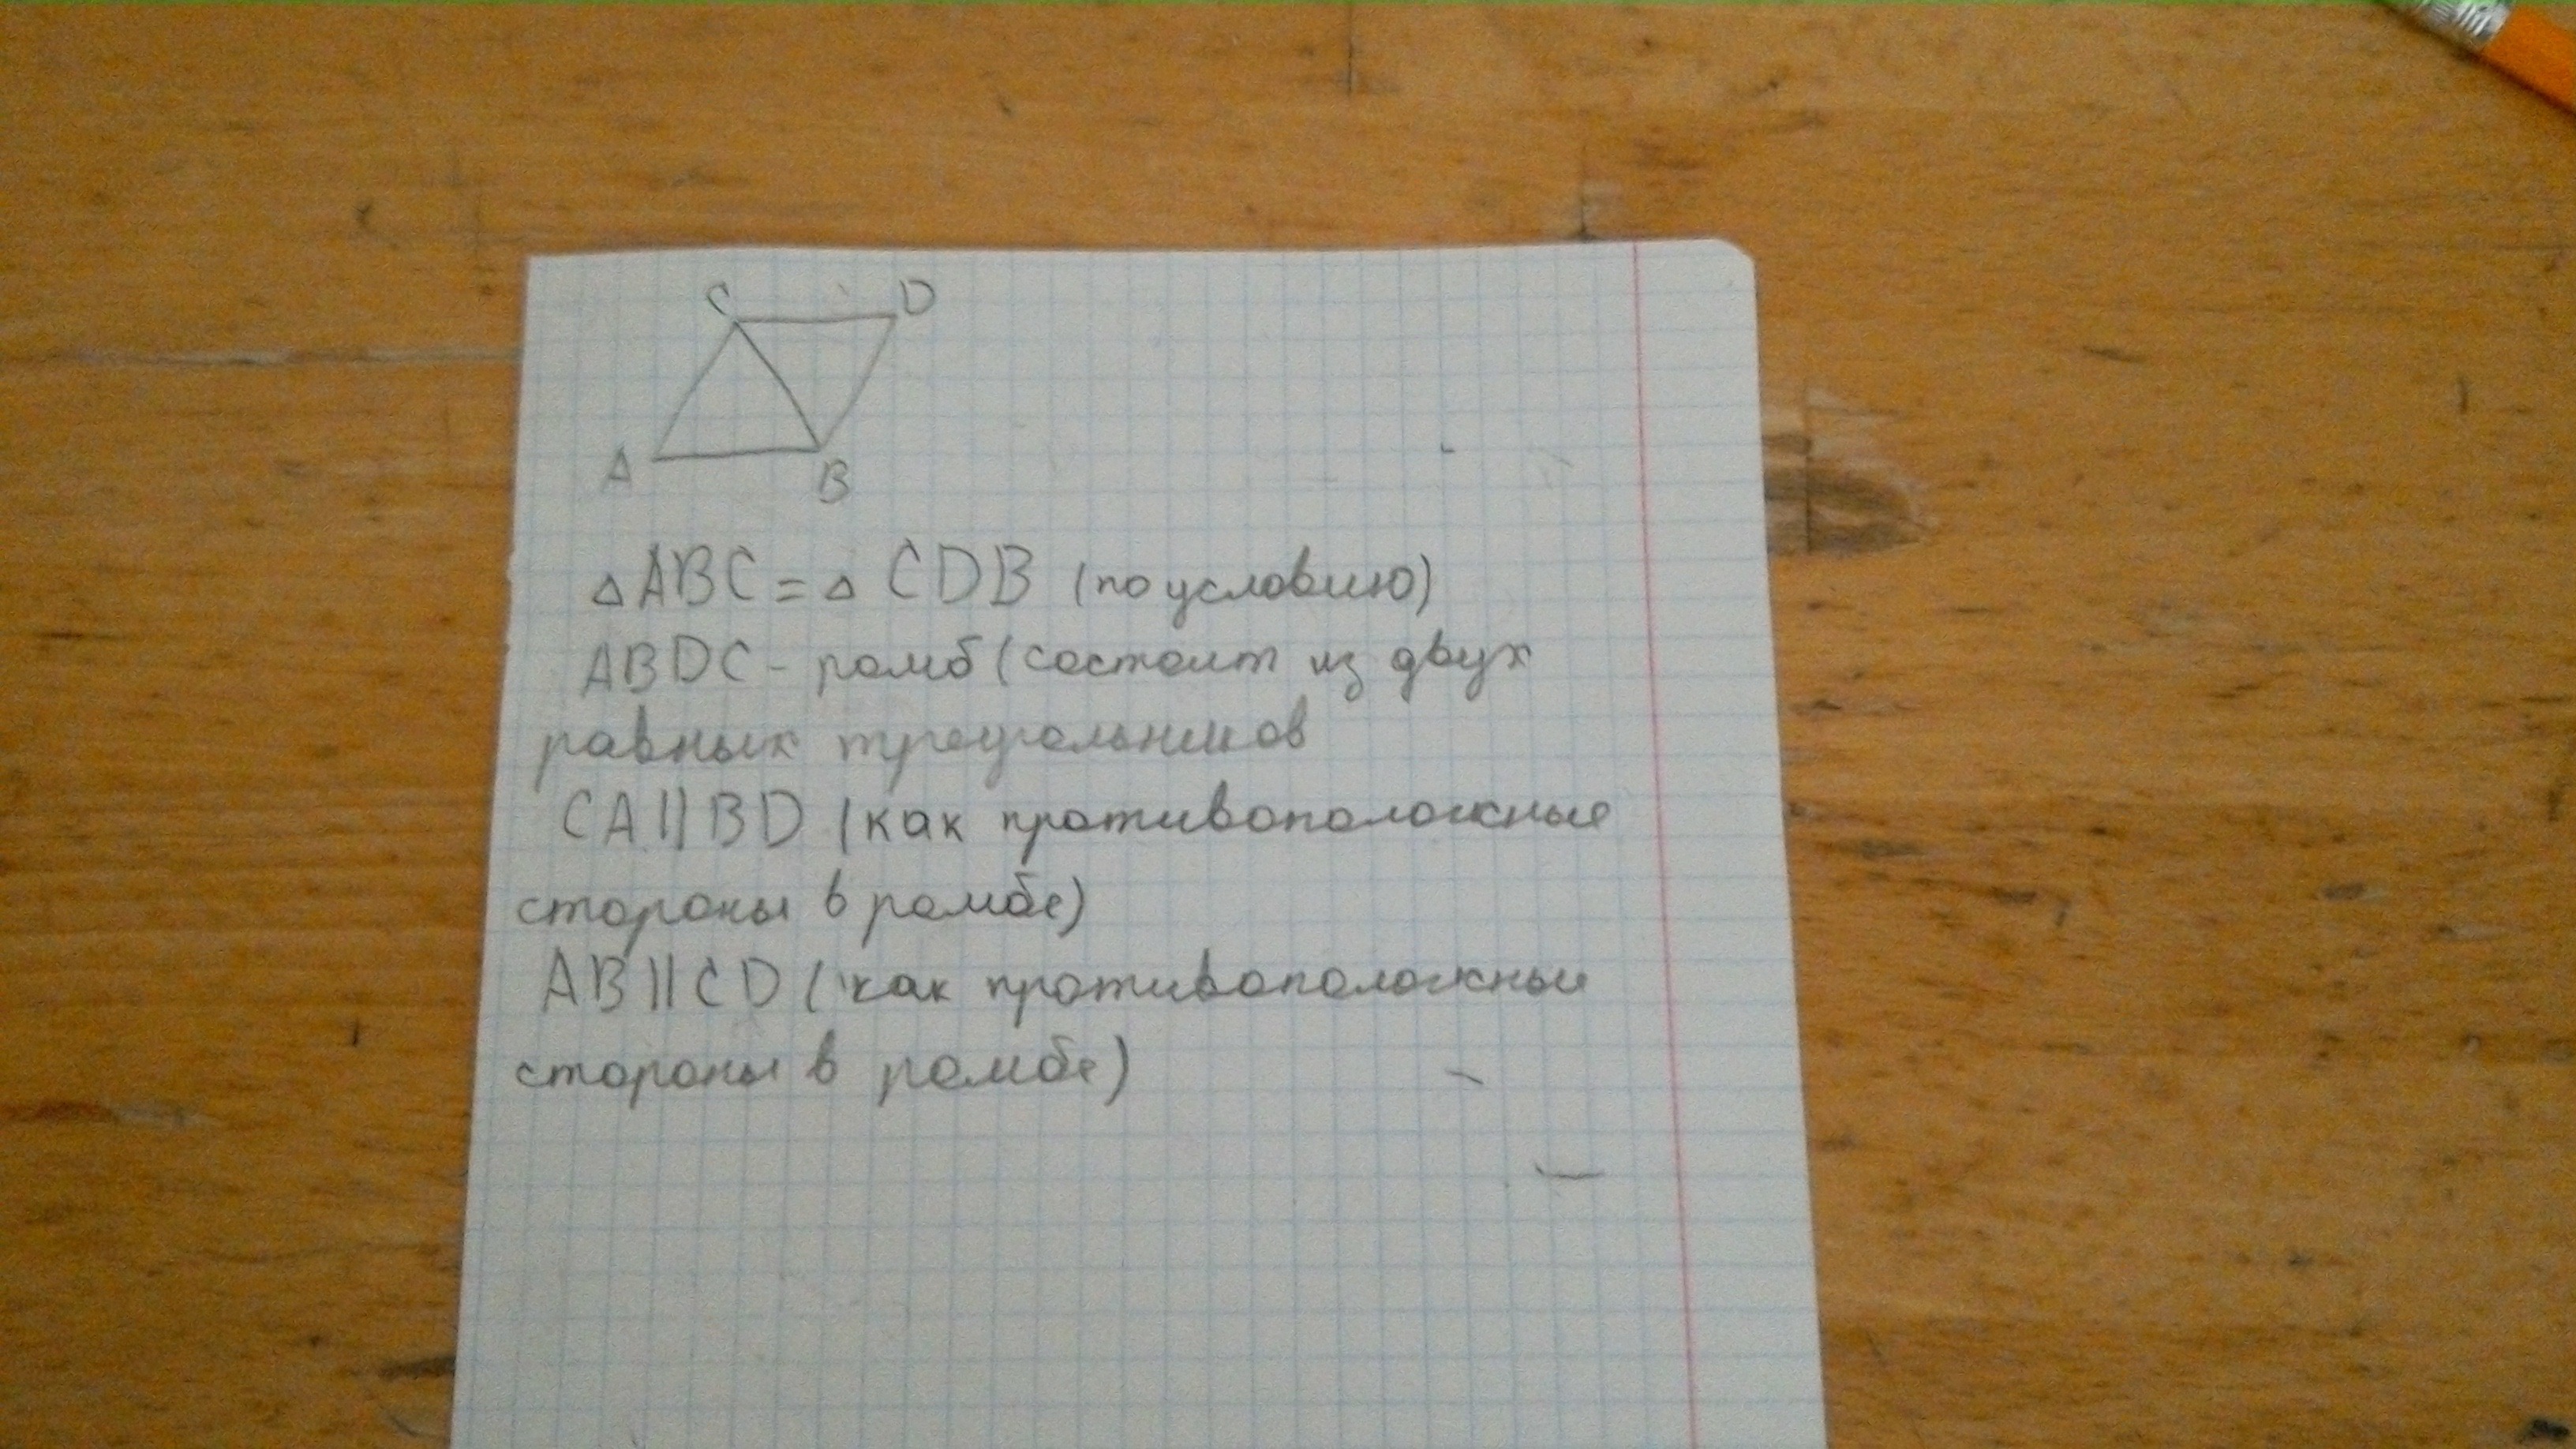 C D
A B
△ABC = △ CDB (по условию)
ABDC - ромб (состоит из двух
равных треугольников
CA || BD (как противоположные
стороны в ромбе)
AB || CD (как противоположные
стороны в ромбе)